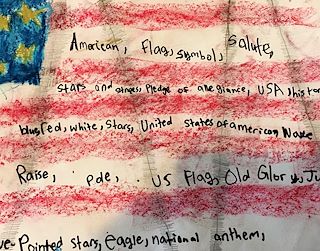 American, Flag, symbol, Salute,
stars and stripes, Pledge of allegiance, USA, histor
blue, red, white, Stars, United states of american, Wave
Raise, pde, US Flag, Old Glory, Ju
ve-Pointed stars, eagle, national anthem,